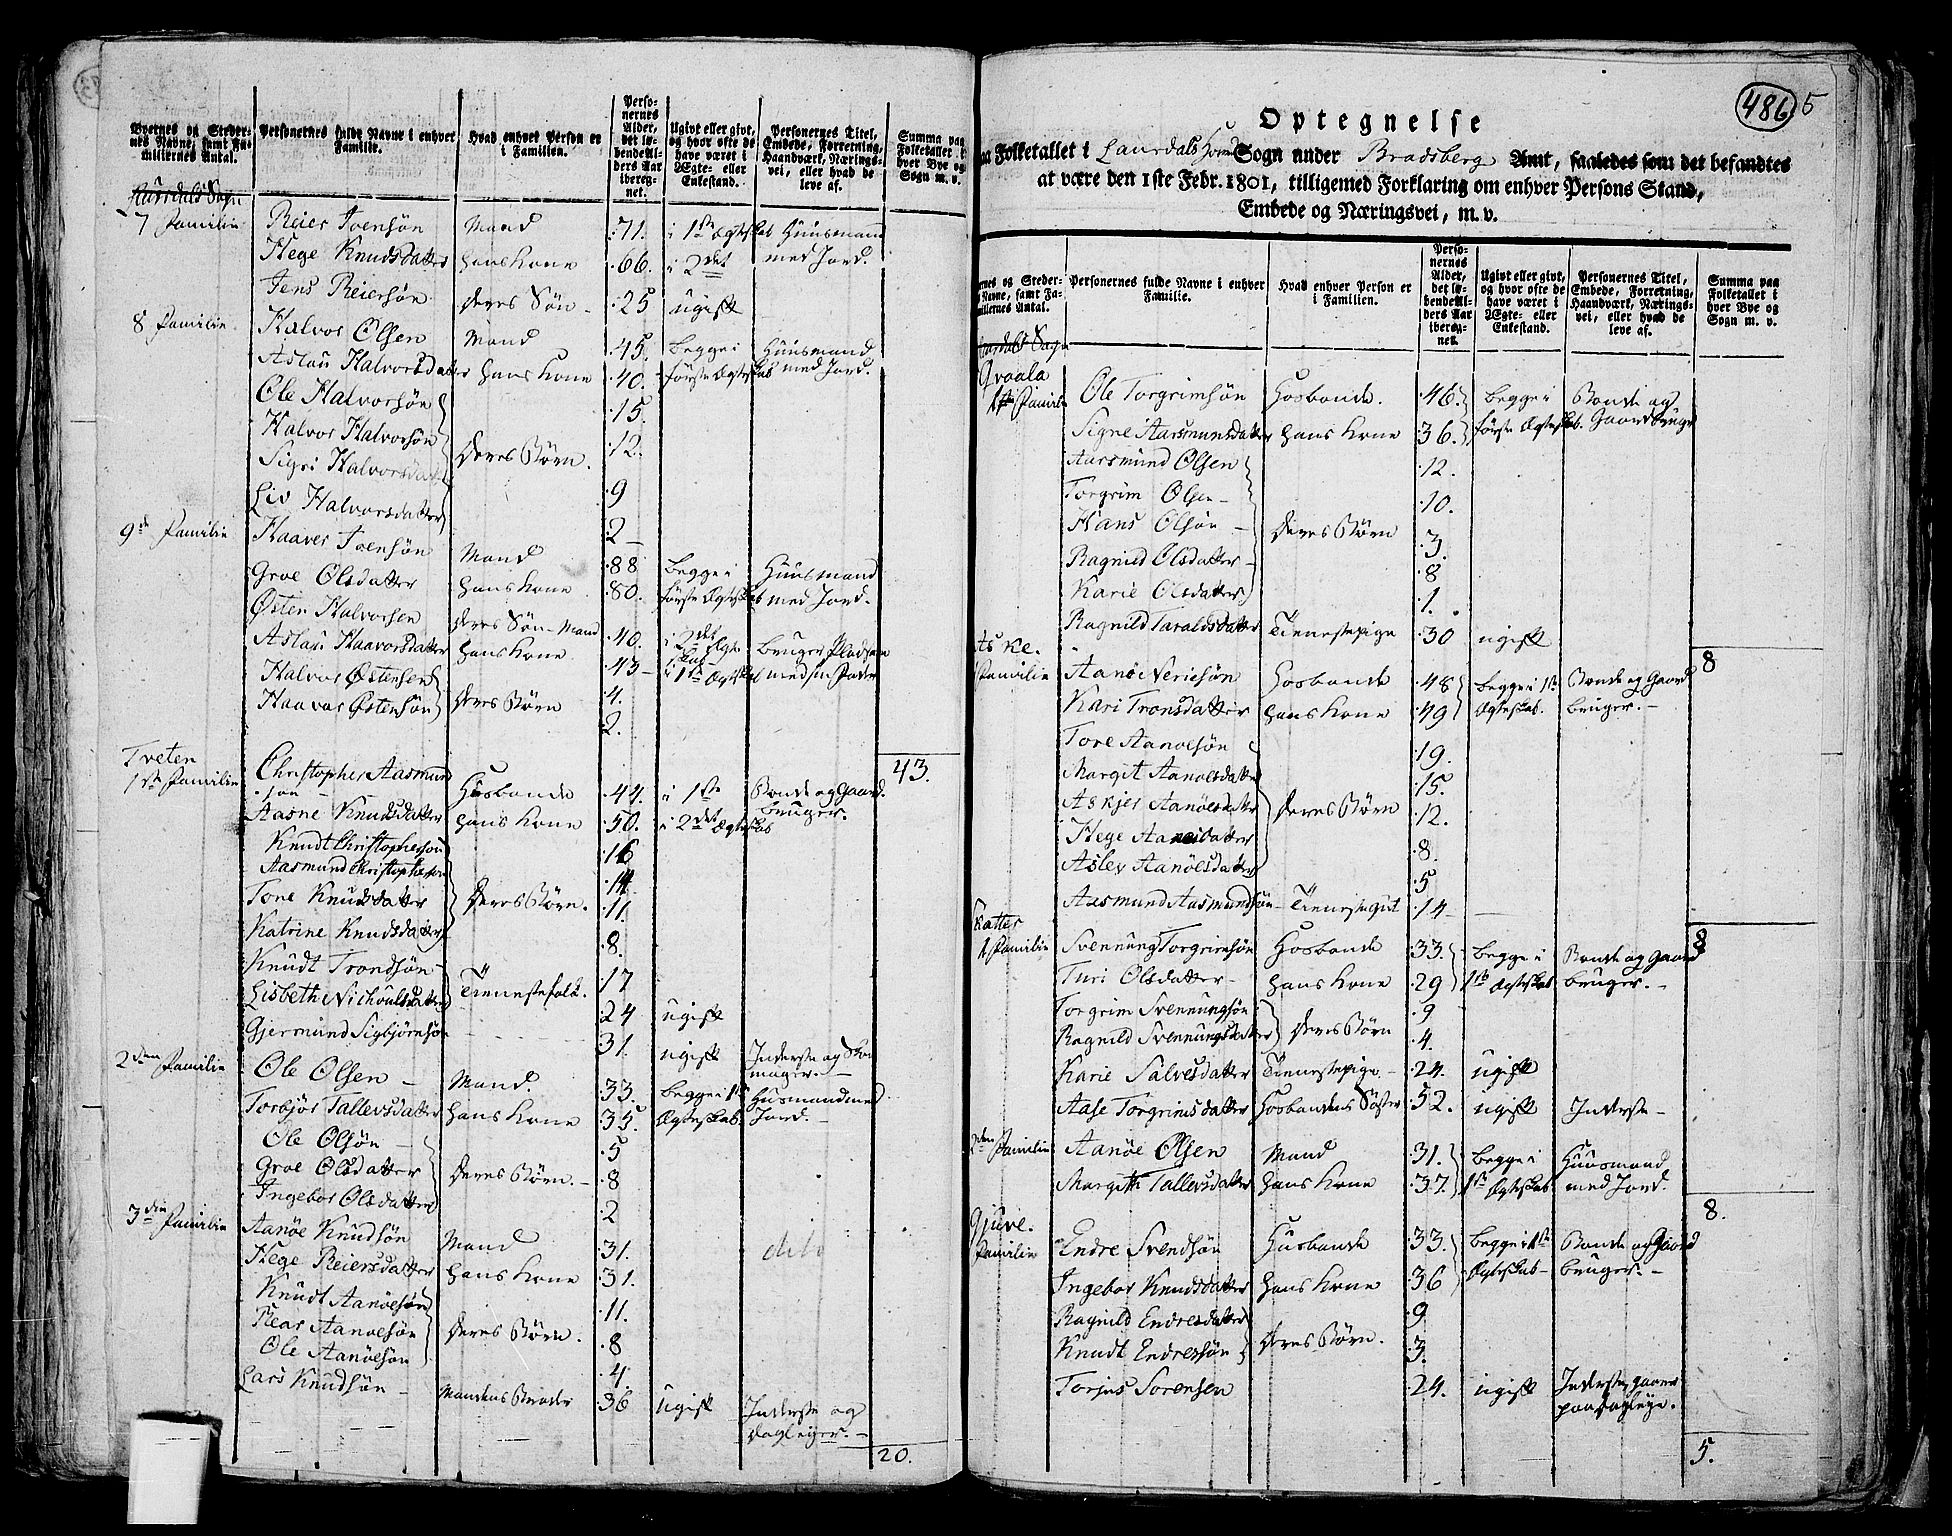 Byernes og Steder-
nes Navne, samt Fa-
miliernes Antal.
Personernes fulde Navne i enhver
Familie.
Hvad enhver Person er
i Familien.
Perso-
nernes
Alder,
det ly-
bende Al-
ders Aar
iberegnet.
Ugivt eller givt,
og hvor ofte de
have været i
Ægte- eller
Enkestand.
Personernes Titel,
Embede, Forretning,
Haandværk, Nærings-
vei, eller hvad de
leve af.
Summa paa
Folketallet i
hver Bye og
Sogn m. v.
Laurdals Sogn
7 Familie Reier Tvensøn Mand 71. i 1ste Ægteskab Huusmand
Hege Knudsdatter hans Kone 66. i 2det med Jord.
Jens Reiersøn deres Søn 25 ugift
8 Familie Halvor Olsen Mand 45. Begge i Huusmand
Aslau Halvorsdatter hans Kone 40. første Ægteskab med Jord.
Ole Halvorsøn 15.
Halvor Halvorsøn deres Børn. 12.
Sigri Halvorsdat 9
Liv Halvorsdatter 2
9de Familie Haaver Tvensøn Mand 88 Begge i Huusmand
Groe Olsdatter hans Kone 80. første Ægteskab med Jord.
Østen Halvorsen deres Søn - Mand 40. i 2det Ægte Bruger Pladsen
Aslau Haavorsdatter hans Kone 43 i 1ste Ægteskab med sin Fader
Halvor Østensen deres Børn 4.
Haavor Østensøn 2.
43.
Tveten
1ste Familie Christopher Aasmun
søn Husbonde 44. i 1ste Bonde og Gaard
Aasne Knudsdatter hans Kone 50. i 2det Ægteskab bruger.
Knudt Christophersøn 16
Aasmund Christophersøn 14.
Tone Knudsdatter deres Børn. 11.
Katrine Knudsdatter 8.
Knudt Trondsøn Tienestefolk. 17
Lisbeth Nichoulsdatter 24 ugift
Gjermund Sigbjørnsøn 31. ugift Inderste og Skoe
mager.
2den Familie Ole Olsen Mand. 33. Begge i 1ste Husmand med
Torbjør Tallevsdatter hans Kone 35. Ægteskab Jord.
Ole Olsøn 5
Groe Olsdatter deres Børn. 8
Ingebor Olsdatter 2
3die Familie Aanøe Knudsøn Mand 31. dito
Hege Reiersdatter hans Kone 31.
Knudt Aanøesøn 11.
Rear Aanoesøn deres Børn. 8
Ole Aanøesøn 4.
Lars Knudsøn Mandens Broder 36 ugift Inderste og
dagleiger.
20.
486 5
Optegnelse
paa Folketallet i Laurdals Hoved Sogn under Bradsberg Amt, saaledes som det befandtes
at være den 1ste Febr. 1801, tilligemed Forklaring om enhver Persons Stand,
Embede og Næringsvei, m. v.
ernes og Steder-
Navne, samt Fa-
miliernes Antal.
Personernes fulde Navne i enhver
Familie.
Hvad enhver Person er
i Familien.
Perso-
nernes
Alder,
det ly-
bende Al-
ders Aar
ibereg-
net.
Ugivt eller givt,
og hvor ofte de
have været i
Ægte- eller
Enkestand.
Personernes Titel,
Embede, Forretning,
Haandværk, Nærings-
vei, eller hvad de
leve af.
Summa paa
Folketallet i
hver Bye og
Sogn m. v.
Laurdals Sogn
Qvaala
1ste Familie Ole Torgrimsøn Hosbonde. 46. Begge i Bonde og
Signe Aarsmunsdatter hans Kone 36. første Ægteskab. Gaardbruger
Aarsmund Olsen 12.
Torgrim Olsen 10.
Hans Olsøn deres Børn 3.
Ragnild Olsdatter 8
Karie Olsdatter 1.
Ragnild Taraldsdatter Tienestepige 30 ugift
8
Aske.
Familie Aanøe Neriesøn Hosbonde 48 Begge i 1ste Bonde og Gaard
Kari Tronsdatter hans Kone 49 Ægteskab. bruger.
Tore Aanoesøn 19.
Margit Aanoesdatter 15.
Askjer Aanøesdatter deres Børn 12.
Hege Aanoesdatter 8.
Aslev Aanøesdatter 5
Aasmund Aasmundsøn Tienestegut 14
8
Katter
1 Familie Svennung Torgrimsøn Hosbonde 33. Begge i Bonde og Gaard
Turi Olsdatter hans Kone 29 1ste Ægteskab bruger.
Torgrim Svennungsøn deres Børn 9
Ragnild Svennungsdatter 4.
Karie Salvesdatter Tienestepige. 24. ugift
Aase Torgrimsdatter Hosbondens Søster 52. ugift Inderste
2den Familie Aanøe Olsen Mand 31. Begge i Huusmand
Margith Tallevsdatter hans Kone 37. 1ste Ægteskab med Jord.
8.
Gjuve.
Familie Endre Svendsøn Husbonde 33. Begge i 1ste Bonde og Gaard
Ingebor Knudsdatter hans Kone 36 Ægteskab bruger.
Ragnild Endresdatter 9
Knudt Endressøn deres Børn. 3.
Torjus Sorensen 24. ugift Inderste gaaer
paa dagleye.
5.